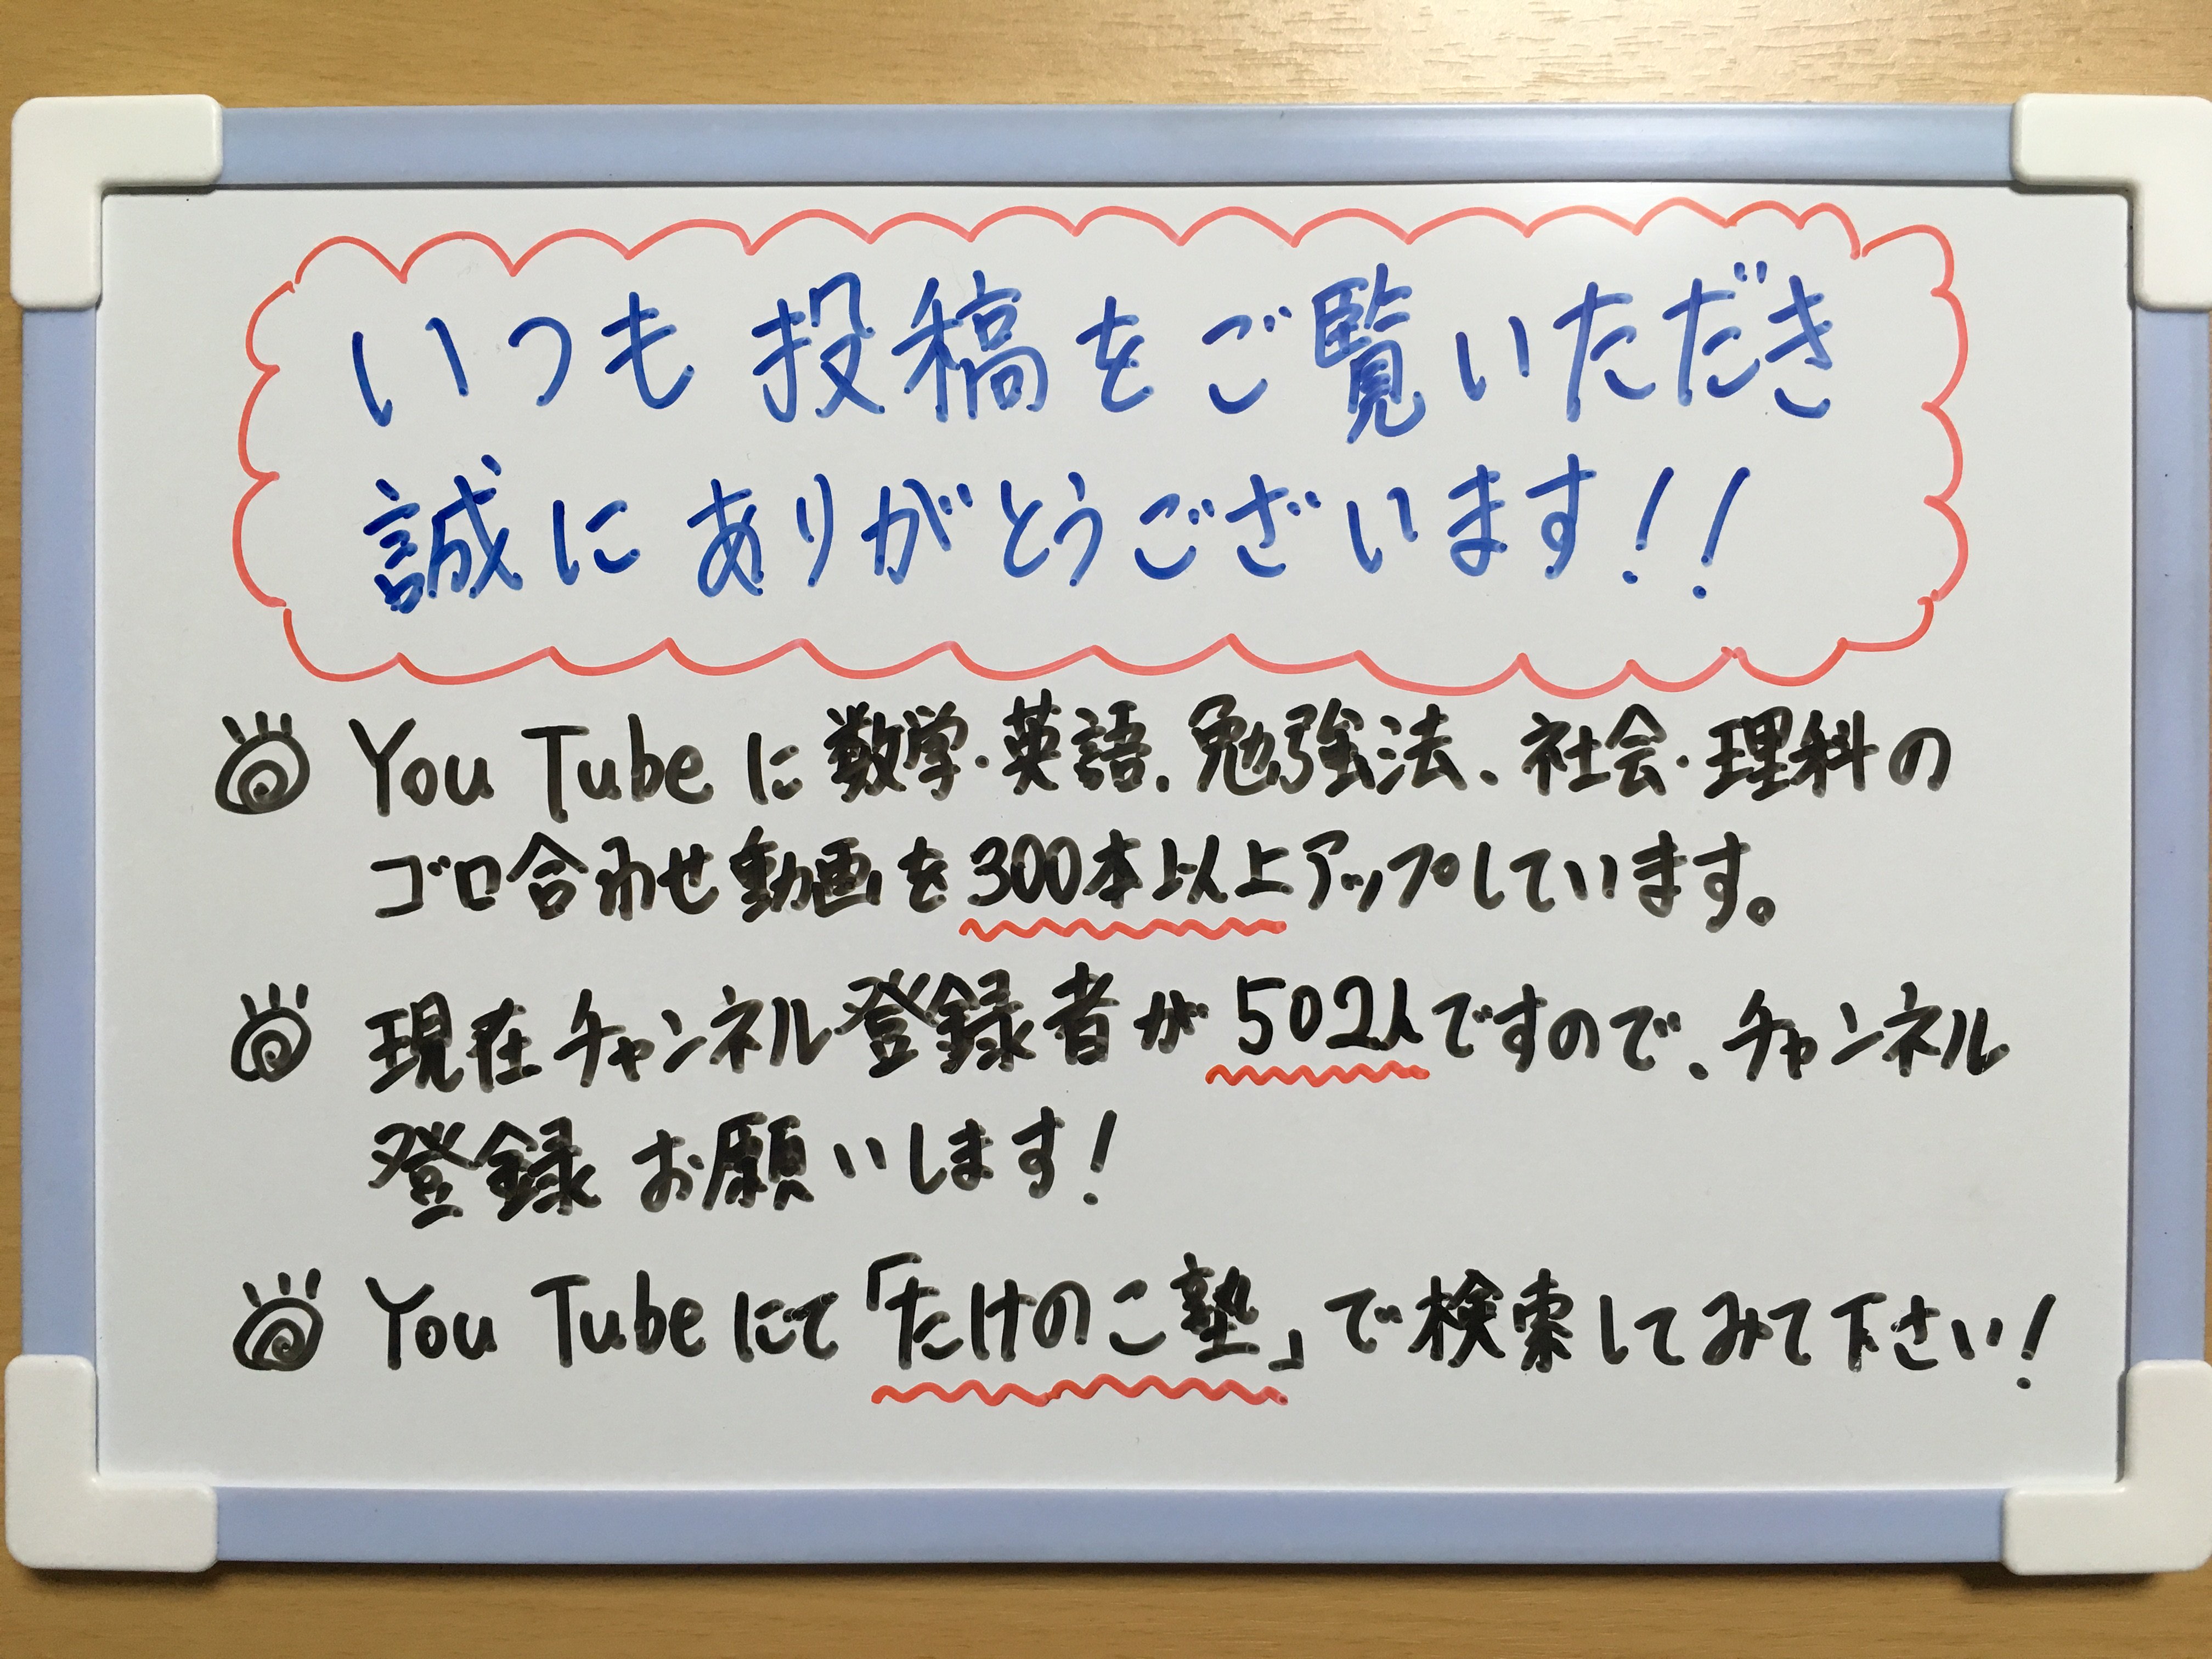 いつも投稿をご覧いただき
誠にありがとうございます!!
You Tubeに数学・英語、勉強法、社会・理科の
ゴロ合わせ動画を300本以上アップしています。
現在チャンネル登録者が502人ですので、チャンネル
登録お願いします!
You Tubeにて「たけのこ塾」で検索してみて下さい!